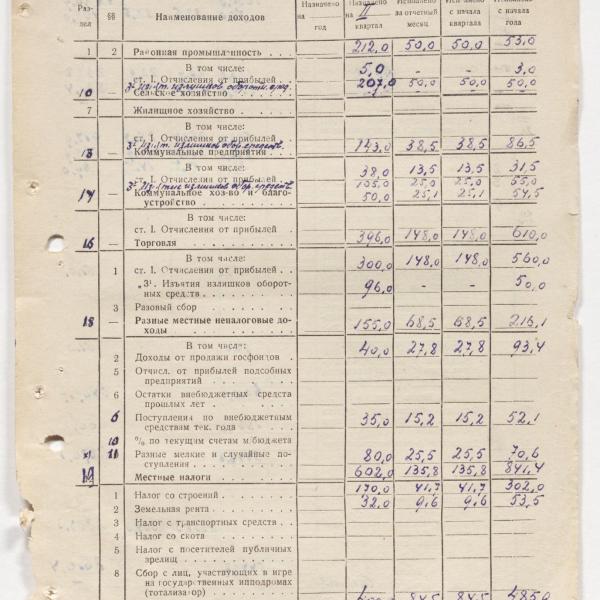 Раз-
дел §§ Наименование доходов Назначено на год Назначено на II квартал Исполнено за отчетный месяц Исполнено с начала квартала Исполнено с начала года
1 2 Районная промышленность 212,0 50,0 50,0 53,0
В том числе:
ст. 1. Отчисления от прибылей 5,0 - - 3,0
3¹ Из'ят. излишков оборотн. сред. 207,0 50,0 50,0 50,0
10 — Сельское хозяйство
7 Жилищное хозяйство
В том числе:
ст. 1. Отчисления от прибылей
3¹ Из'ят. излишков обор. средств.
13 — Коммунальные предприятия 143,0 38,5 38,5 86,5
В том числе:
ст. 1. Отчисления от прибылей 38,0 13,5 13,5 31,5
3¹ Из'ятие излишков обор. средств. 105,0 25,0 25,0 55,0
14 — Коммунальное хоз-во и благо-
устройство 50,0 25,1 25,1 54,5
В том числе:
ст. 1. Отчисления от прибылей
16 — Торговля 396,0 148,0 148,0 610,0
В том числе:
1 ст. 1. Отчисления от прибылей 300,0 148,0 148,0 560,0
„3¹. Изъятия излишков оборот-
ных средств 96,0 - - 50,0
3 Разовый сбор
18 — Разные местные неналоговые до-
ходы 155,0 68,5 68,5 216,1
В том числе:
2 Доходы от продажи госфондов 40,0 27,8 27,8 93,4
5 Отчисл. от прибылей подсобных
предприятий
6 Остатки внебюджетных средств
прошлых лет
6 Поступления по внебюджетным
средствам тек. года 35,0 15,2 15,2 52,1
10 % по текущим счетам м/бюджета
11 Разные мелкие и случайные по-
ступления 80,0 25,5 25,5 70,6
19 Местные налоги 602,0 135,8 135,8 841,4
1 Налог со строений 170,0 41,7 41,7 302,0
2 Земельная рента 32,0 9,6 9,6 53,5
3 Налог с транспортных средств
4 Налог со скота
5 Налог с посетителей публичных
зрелищ
8 Сбор с лиц, участвующих в игре
на государственных ипподромах
(тотализатор) 84,5 84,5 485,0